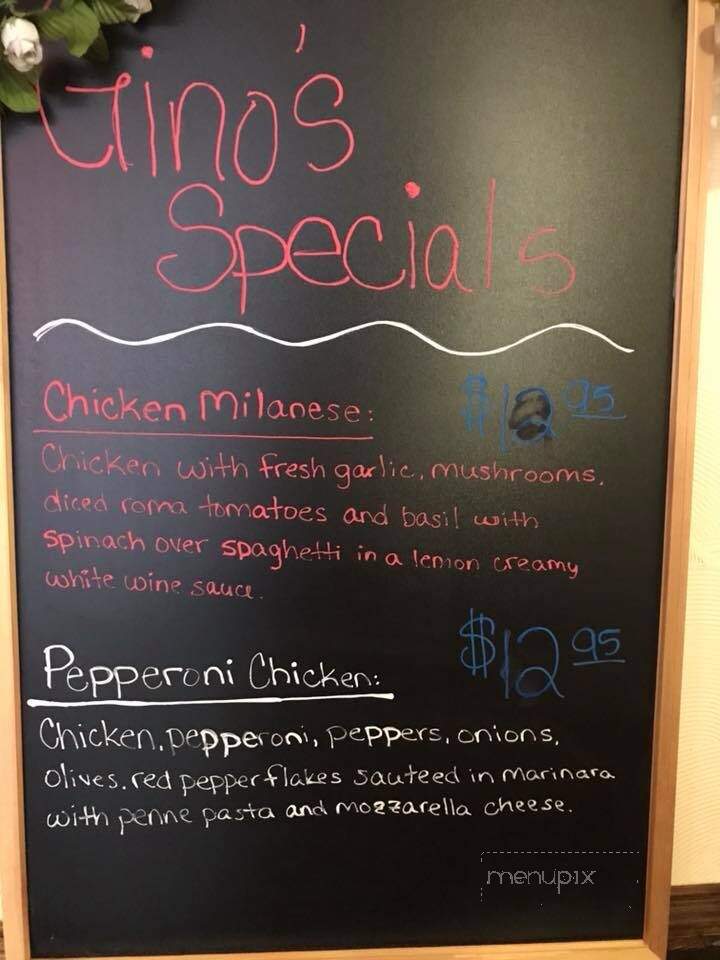 Gino's
Specials
Chicken Milanese: $12 95
Chicken with fresh garlic, mushrooms,
diced roma tomatoes and basil with
spinach over spaghetti in a lemon creamy
white wine sauce.
Pepperoni Chicken: $12 95
Chicken, pepperoni, peppers, onions,
olives, red pepper flakes sauteed in marinara
with penne pasta and mozzarella cheese.
menupix